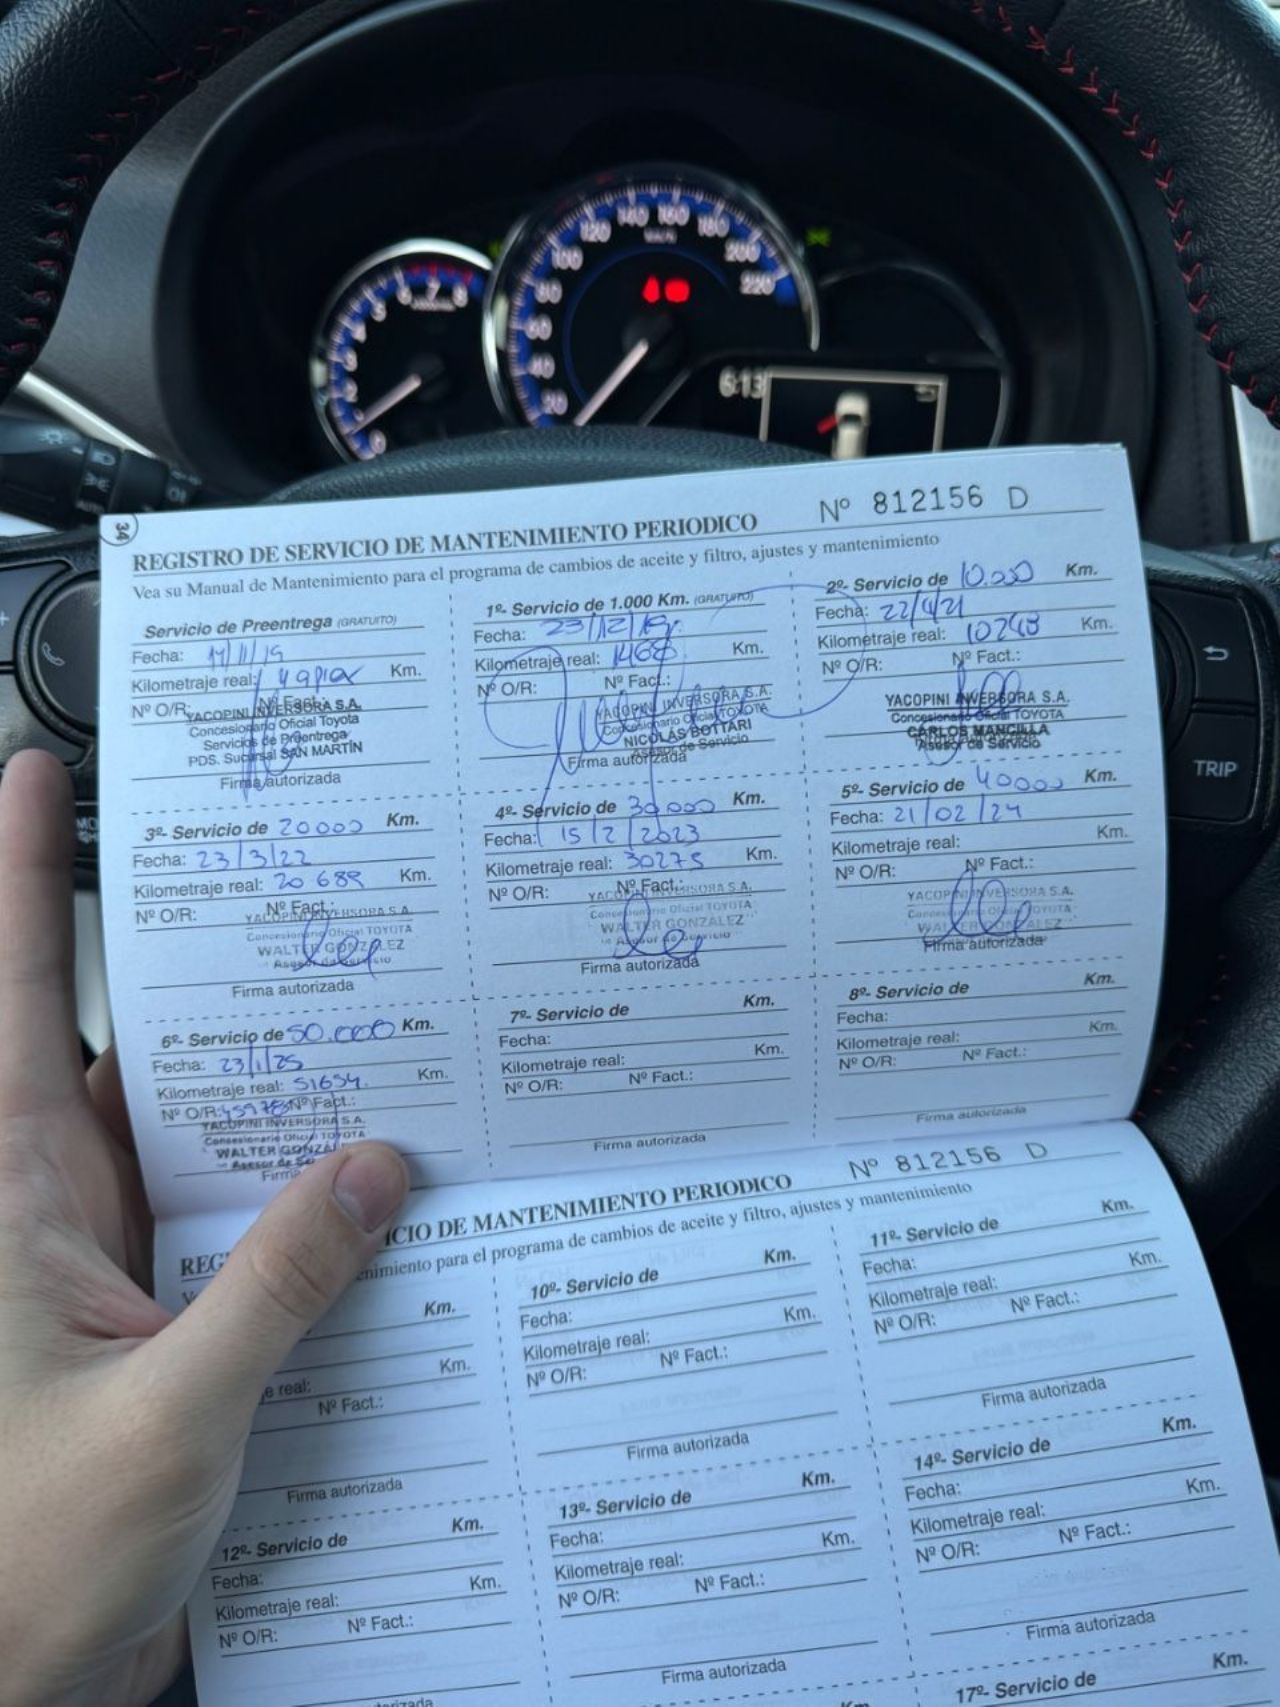 140 160
120 180
km/h
100 200
80 220
60
40
20
6 7 8
5
4
3
2
1
0
6:13
34
REGISTRO DE SERVICIO DE MANTENIMIENTO PERIODICO Nº 812156 D
Vea su Manual de Mantenimiento para el programa de cambios de aceite y filtro, ajustes y mantenimiento
Servicio de Preentrega (GRATUITO)
Fecha: /11/19
Kilometraje real: Km.
Nº O/R: Nº Fact.:
YACOPINI INVERSORA S.A.
Concesionario Oficial Toyota
Servicios de Preentrega
PDS. Sucursal SAN MARTÍN
Firma autorizada
1º- Servicio de 1.000 Km. (GRATUITO)
Fecha: 23/12/19
Kilometraje real: 1468 Km.
Nº O/R: Nº Fact.:
YACOPINI INVERSORA S.A.
Concesionario Oficial TOYOTA
NICOLÁS BOTTARI
Asesor de Servicio
Firma autorizada
2º- Servicio de 10.000 Km.
Fecha: 22/4/21
Kilometraje real: 10248 Km.
Nº O/R: Nº Fact.:
YACOPINI INVERSORA S.A.
Concesionario Oficial TOYOTA
CARLOS MANCILLA
Asesor de Servicio
3º- Servicio de 20000 Km.
Fecha: 23/3/22
Kilometraje real: 20 689 Km.
Nº O/R: Nº Fact.:
YACOPINI INVERSORA S.A.
Concesionario Oficial TOYOTA
WALTER GONZALEZ
Asesor de Servicio
Firma autorizada
4º- Servicio de 30000 Km.
Fecha: 15/2/2023
Kilometraje real: 30275 Km.
Nº O/R: Nº Fact.:
YACOPINI INVERSORA S.A.
Concesionario Oficial TOYOTA
WALTER GONZALEZ
Asesor de Servicio
Firma autorizada
5º- Servicio de 40000 Km.
Fecha: 21/02/24
Kilometraje real: Km.
Nº O/R: Nº Fact.:
YACOPINI INVERSORA S.A.
Concesionario Oficial TOYOTA
WALTER GONZALEZ
Firma autorizada
6º- Servicio de 50.000 Km.
Fecha: 23/1/25
Kilometraje real: 51654. Km.
Nº O/R: 45978 Nº Fact.:
YACOPINI INVERSORA S.A.
Concesionario Oficial TOYOTA
WALTER GONZA
Asesor de Se
Firma
7º- Servicio de Km.
Fecha:
Kilometraje real: Km.
Nº O/R: Nº Fact.:
Firma autorizada
8º- Servicio de Km.
Fecha:
Kilometraje real: Km.
Nº O/R: Nº Fact.:
Firma autorizada
REG ICIO DE MANTENIMIENTO PERIODICO Nº 812156 D
V enimiento para el programa de cambios de aceite y filtro, ajustes y mantenimiento
Km.
e real: Km.
Nº Fact.:
Firma autorizada
10º- Servicio de Km.
Fecha:
Kilometraje real: Km.
Nº O/R: Nº Fact.:
Firma autorizada
11º- Servicio de Km.
Fecha:
Kilometraje real: Km.
Nº O/R: Nº Fact.:
Firma autorizada
12º- Servicio de Km.
Fecha:
Kilometraje real: Km.
Nº O/R: Nº Fact.:
torizada
13º- Servicio de Km.
Fecha:
Kilometraje real: Km.
Nº O/R: Nº Fact.:
Firma autorizada
Km
14º- Servicio de Km.
Fecha:
Kilometraje real: Km.
Nº O/R: Nº Fact.:
Firma autorizada
17º- Servicio de Km.
TRIP